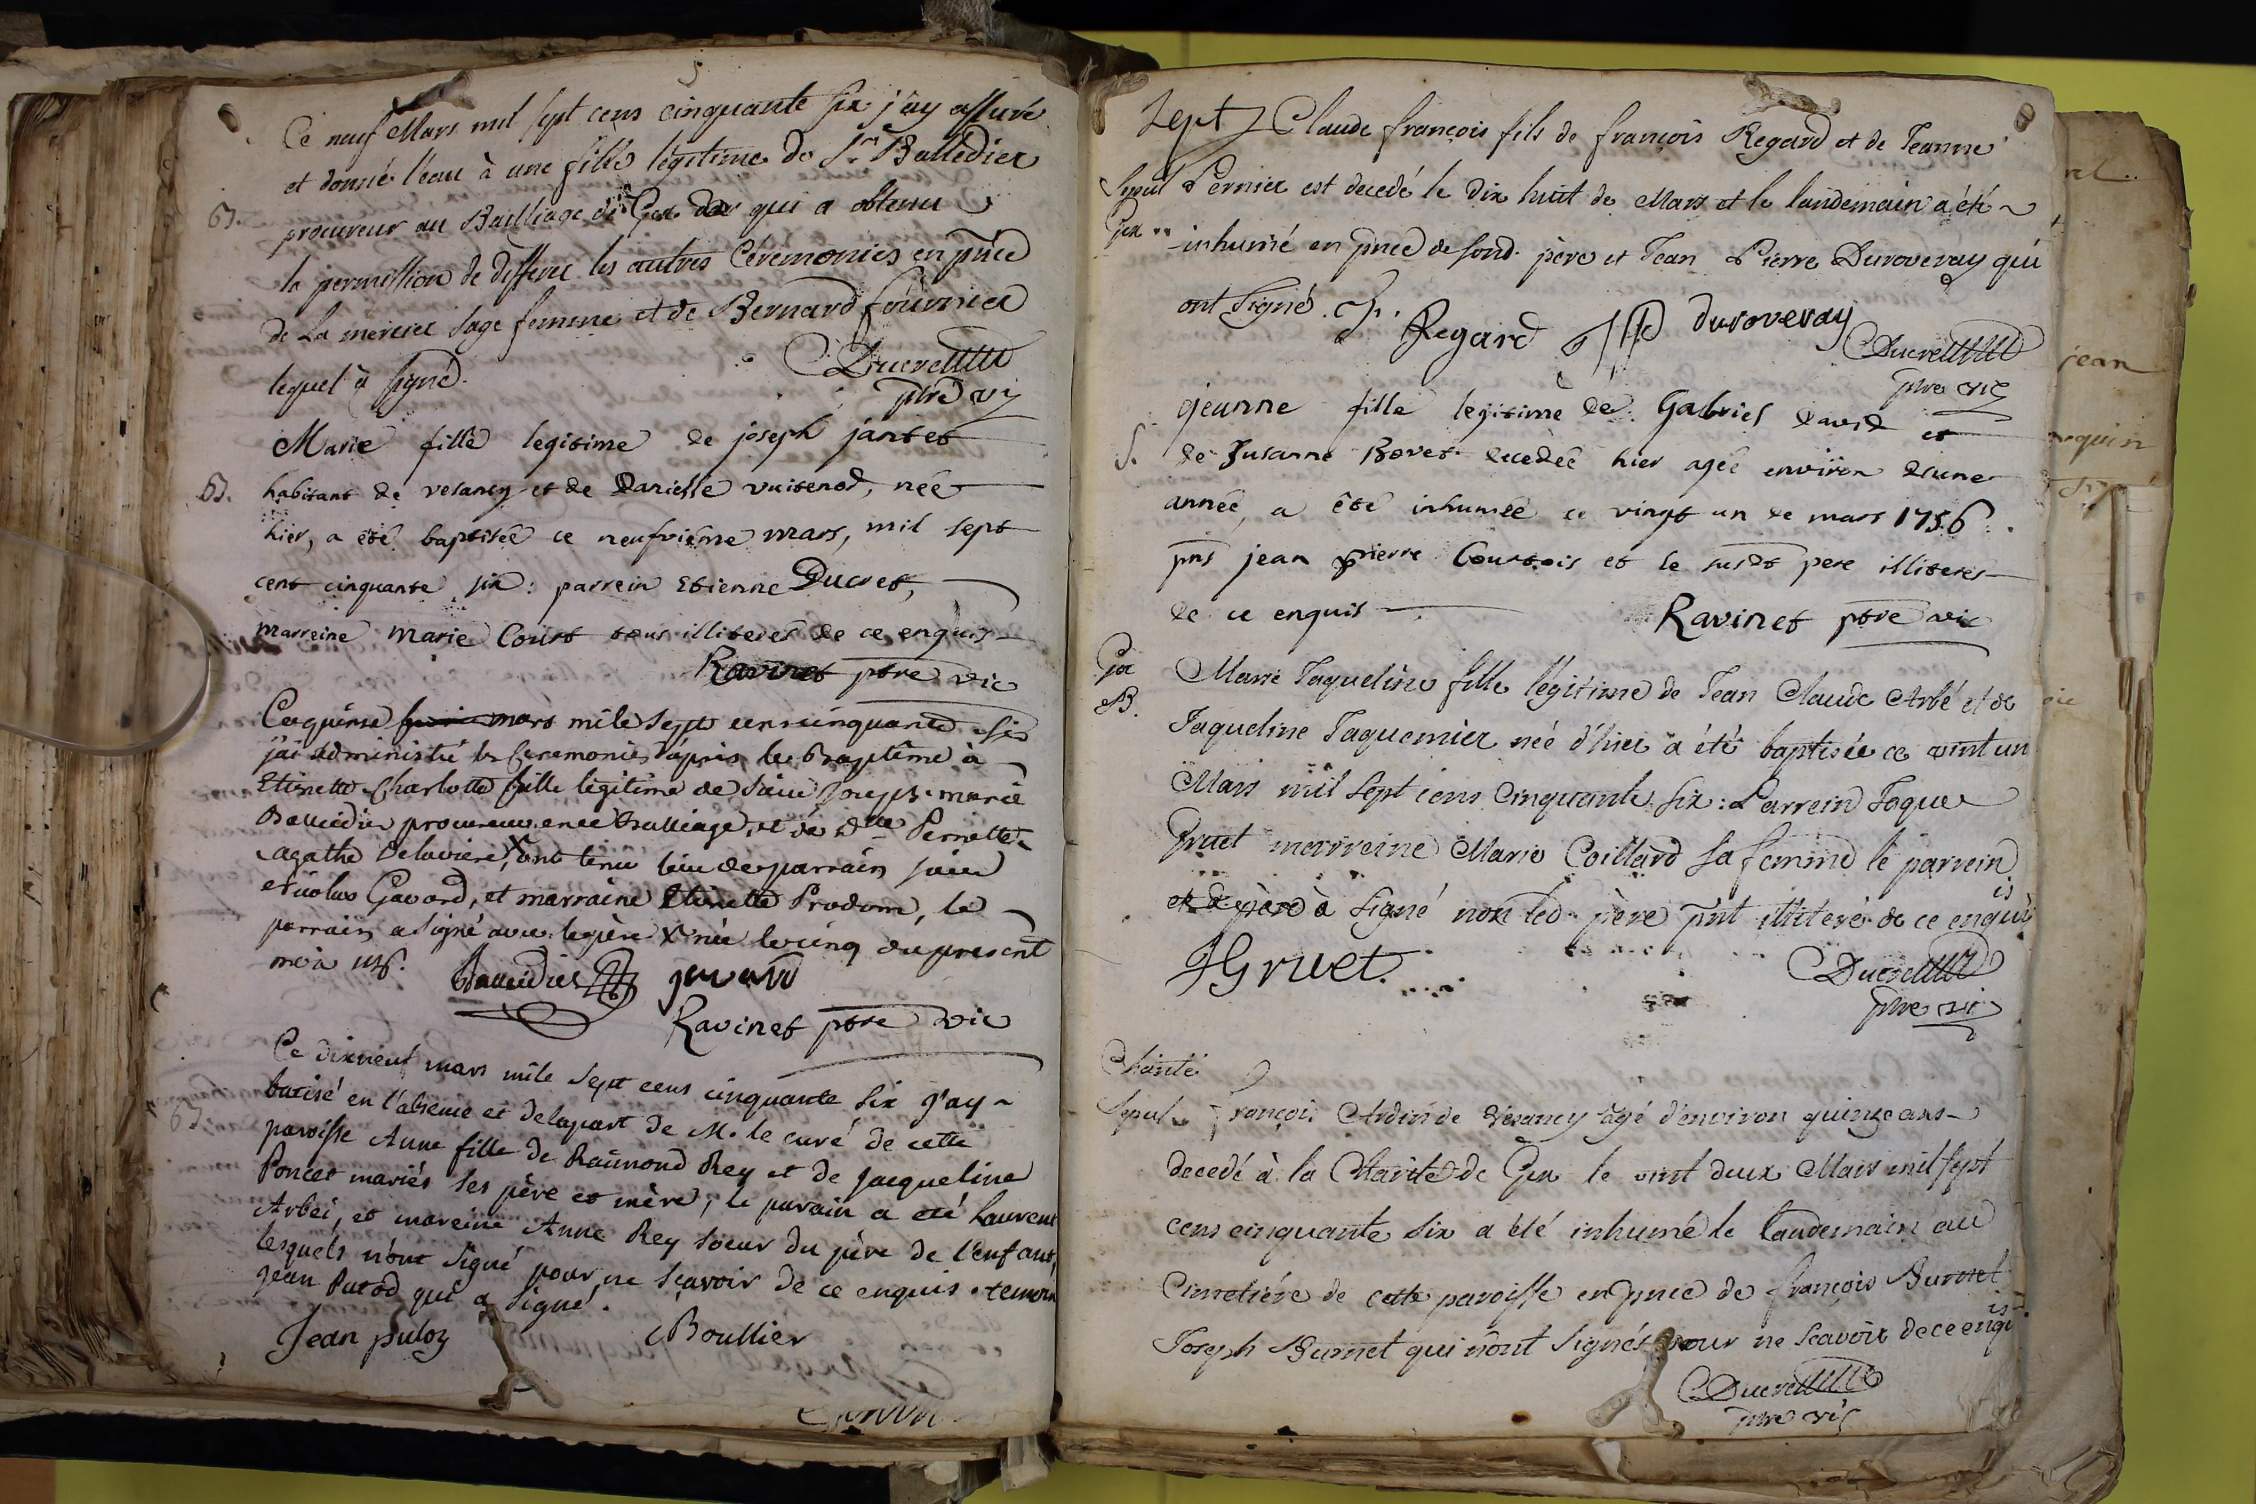 Ce neuf Mars mil sept cens cinquante six j'ay assuré
et donné l'eau à une fille légitime de Sr Balledier
B.
procureur au Bailliage de Gex qui a obtenu
la permission de differer les autres Cérémonies en pnce
de La mercier Sage femme et de Bernard fournier
lequel à signé.
Ducret
ptre vic
Marie fille legitime de joseph jantet
B. habitant de vesancy et de Danielle vuitenod, née
hier, a été baptisée ce neufvième mars, mil sept
cent cinquante six : parrein Etienne Ducret,
marreine Marie Court tous illiterés de ce enquis
Ravinet ptre vic
Ce quinse mars mile sept cens cinquante six
j'ai administré les Ceremonies d'après le baptême à
Etienette Charlotte fille legitime de Sieur Joseph marie
Balledier procureur en ce bailliage, et de dlle Pernette
agathe Delaviere, ont tenu lieu de parrain sieur
nicolas Gavard, et marraine Etienette Prodom, le
parrain a signé avec le père X née le cinq du present
mois
Balledier
Ravinet ptre vic
Ce dixneuf mars mile sept cens cinquante six j'ay
B.
batisé en l'absence et de la part de M. le curé de cette
paroisse Anne fille de Raimond Rey et de Jacqueline
Poncet mariés ses père et mère ; le parain a eté Laurent
Arbei, et mareine Anne Rey soeur du père de l'enfant,
lesquels n'ont signé pour ne sçavoir de ce enquis. temoin
jean Putod qui a signé.
Jean putoz Boullier
Sept Claude françois fils de françois Regard et de Jeanne
Sepul Pernier est decedé le dix huit de Mars et le landemain a été
Gex inhumé en pnce de sond. père et Jean Pierre Duroveray qui
ont signé. f. Regard JP duroveray
Ducret
ptre vic
jeanne fille legitime de Gabriel david et
S. de Susanne Bovet decedée hier agée environ d'une
année, a été inhumée ce vingt un de mars 1756.
pns jean pierre Courtois et le susdt pere illiteres
de ce enquis Ravinet ptre vic
Gex
B.
Marie Jaqueline fille légitime de Jean Claude Arbé et de
Jaqueline Jaquemier née d'hier a été baptisée ce vint un
Mars mil sept cens Cinquante six : Parrein Jaque
Gruet marreine Marie Coillard sa femme le parrein
à signé non led. père pnt illiteré de ce enquis
JGruet
Ducret
ptre vic
Charité
Sepul françois Ardin de Vesancy agé d'environ quinze ans
decedé à la Charité de Gex le vint deux Mars mil sept
cens cinquante six a été inhumé le landemain au
Cimetiére de cette paroisse en pnce de françois Burnet
Joseph Burnet qui n'ont signés pour ne scavoir de ce enquis
Ducret
ptre vic
jean